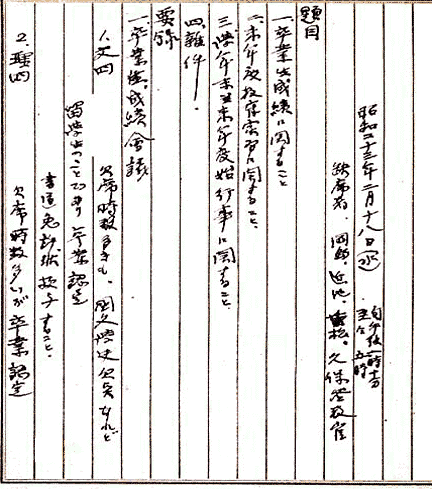 昭和二十三年二月十八日(水) 自午後一時十分 至全五時
欠席者、岡部、近池、重松、久保登教官
題目
一、卒業生成績に関すること
二、来年度教育実習に関すること、
三、学年末並来年度始行事に関すること、
四、雑件
要録
一、卒業生成績会議
1. 文四 欠席時数多きも、
留学生のことであり卒業認定
書道免許状授与すること、
2. 理四 欠席時数多いが卒業認定